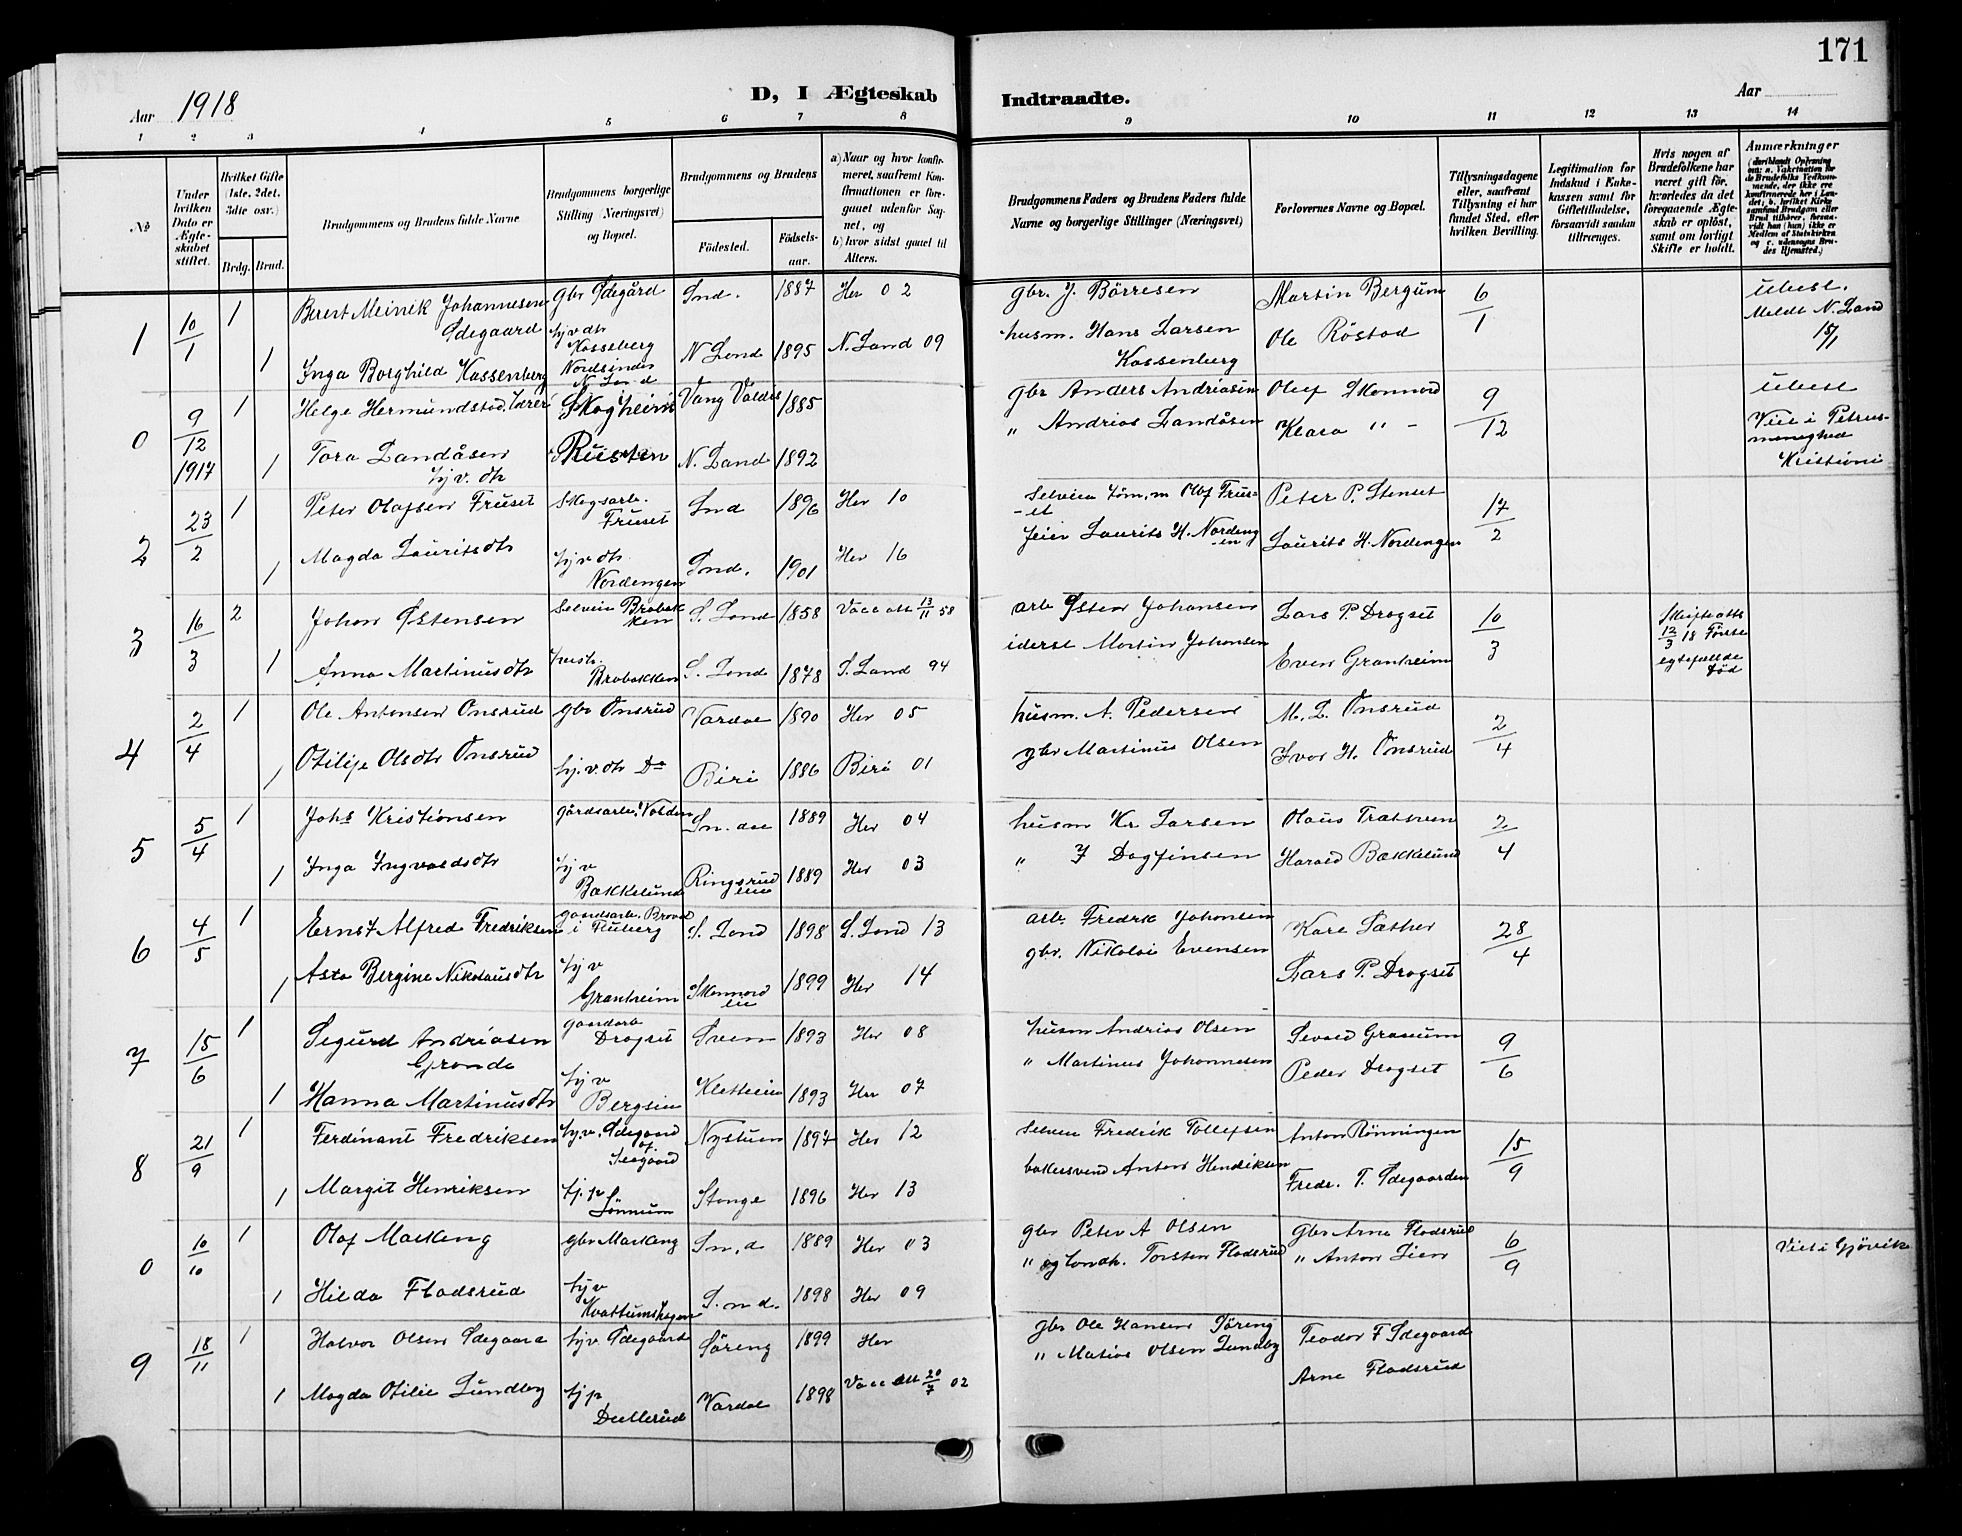 171
Aar 1918
D, I Ægteskab Indtraadte.
Aar
1 2 3 4 5 6 7 8 9 10 11 12 13 14
№
Under hvilken Dato er Ægteskabet stiftet.
Hvilket Gifte (1ste, 2det, 3die osv.)
Brdg. Brud.
Brudgommens og Brudens fulde Navne
Brudgommens borgerlige Stilling (Næringsvei) og Bopæl.
Brudgommens og Brudens
Födested. Födsels-aar.
a) Naar og hvor konfirmeret, saafremt Konfirmationen er foregaaet udenfor Sognet, og
b) hvor sidst gaaet til Alters.
Brudgommens Faders og Brudens Faders fulde Navne og borgerlige Stillinger (Næringsvei)
Forlovernes Navne og Bopæl.
Tillysningsdagene eller, saafremt Tillysning ei har fundet Sted, efter hvilken Bevilling.
Legitimation for Indskud i Enkekassen samt for Giftetilladelse, forsaavidt saadan tiltrænges.
Hvis nogen af Brudefolkene har været gift för, hvorledes da det foregaaende Ægteskab er oplöst, samt om lovligt Skifte er holdt.
Anmærkninger
1 10/1 1 Johannesen Ødegaard gbr Ødegård Snd. 1887 Her 02 gbr. J. Börresen Martin Bergum 6/1 ubesl. Meldt N. Land 15/1
1 Inga Borghild Kassenberg tjv dtr Kasseberg Nordsinden N. Land N Land 1895 N. Land 09 husm. Hans Larsen Kassenberg Ole Röstad
0 9/12 1917 1 Helge Hermundstad, lærer Skogheim Vang Valdis 1885 gbr Anders Andriasen Olaf Skonnord 9/12 ubesl
1 Tora Landåsen tjv. dtr N. Land 1892 " Andrias Landåsen Klara " - Viet i Petrus-menighed Kristiani
2 23/2 1 Peter Olafsen Fruset Skogsarb. Fruset Snd 1896 Her 10 Olaf Fruset Peter P. Stenset 17/2
1 Magda Lauritsdtr tjv dtr Nordengen Snd. 1901 Her 16 Laurits H. Nordengen Laurits H. Nordengen
3 16/3 2 Johan Østensen Brobakken S. Land 1858 Vacc att 13/11 58 arb Østen Johansen Lars P. Drogset 10/3 Skifteatts 12/3 18 Første egtefælle död
1 Anna Martinusdtr Brobakken S. Land 1878 S. Land 94 Martin Johansen Even Granheim
4 2/4 1 Ole Antonsen Onsrud gbr Onsrud Vardal 1890 Her 05 husm. A. Pedersen M. L. Onsrud 2/4
1 Otilije Olsdtr Onsrud tj. v. dtr Do Biri 1886 Biri 01 gbr Martinus Olsen Ivar H. Onsrud
5 5/4 1 Johs Kristiansen gårdsarb. Volden 1889 Her 04 husm Kr Larsen Olaus 2/4
1 Inga Ingvaldsdtr tjv Bækkelund Ringsrudeie 1889 Her 03 " I Dagfinsen Harald Bækkelund
6 4/5 1 Ernst Alfred Fredriksen gaardsarb. i Fluberg S. Land 1898 S. Land 13 arb. Fredrik Johansen Kare Sæther 28/4
1 Asta Bergine Nikolaisdtr tjv Granheim Skonnordeie 1899 Her 14 gbr. Nikolai Evensen Lars P. Drogset
7 15/6 1 Sigurd Andriasen Grande gaardarb Drogset Sveen 1893 Her 08 husm Andrias Olsen 9/6
1 Hanna Martinusdtr tjv Bergseie 1893 Her 07 " Martinus Johannesen Peder Drogset
8 21/9 1 Ferdinant Fredriksen tjv. Ødegaard Nystuen 1897 Her 12 Fredrik Tollefsen Anton Rönningen 15/9
1 Margit Henriksen tj. p. Stange 1896 Her 13 bakersvend Anton Hendriksen Fredr. T. Ødegaarden
0 10/10 1 Olaf Markeng gbr Markeng Sn.d 1889 Her 03 gbr Peter A Olsen Gbr Arne Fladsrud 6/9 Viet i Gjövik
1 Hilda Fladsrud tjv Kvattumshagen S.nd. 1898 Her 09 " og landh. Torsten Fladsrud " Anton Lien
9 18/11 1 Halvor Olsen Ødegaard tjv Ødegaard Söreng 1899 Her gbr Ole Hansen Söreng Teodor F Ødegaard
1 Magda Otilie Lundby tjp Dællerud Vardal 1898 Vacc att 20/7 02 " Matias Olsen Lundby Arne Fladsrud